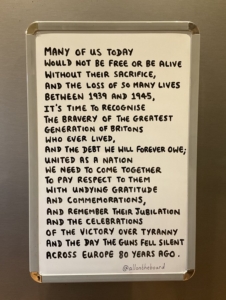 MANY OF US TODAY
WOULD NOT BE FREE OR BE ALIVE
WITHOUT THEIR SACRIFICE,
AND THE LOSS OF SO MANY LIVES
BETWEEN 1939 AND 1945,
IT'S TIME TO RECOGNISE
THE BRAVERY OF THE GREATEST
GENERATION OF BRITONS
WHO EVER LIVED,
AND THE DEBT WE WILL FOREVER OWE;
UNITED AS A NATION
WE NEED TO COME TOGETHER
TO PAY RESPECT TO THEM
WITH UNDYING GRATITUDE
AND COMMEMORATIONS,
AND REMEMBER THEIR JUBILATION
AND THE CELEBRATIONS
OF THE VICTORY OVER TYRANNY
AND THE DAY THE GUNS FELL SILENT
ACROSS EUROPE 80 YEARS AGO.
@allontheboard